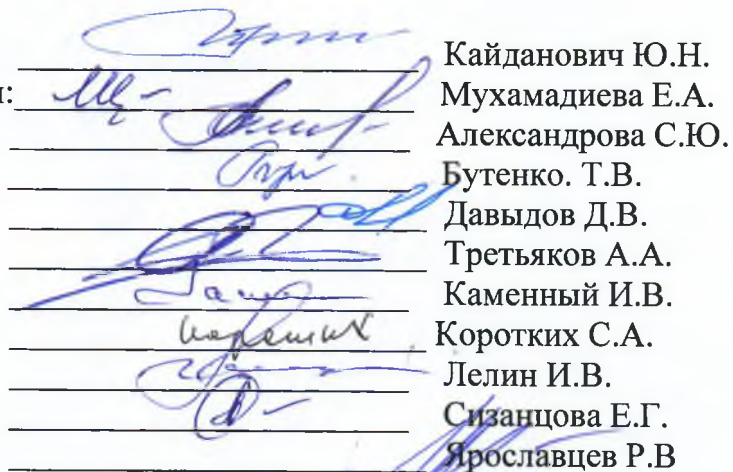 Кайданович Ю.Н.
: Мухамадиева Е.А.
Александрова С.Ю.
Бутенко. Т.В.
Давыдов Д.В.
Третьяков А.А.
Каменный И.В.
Коротких С.А.
Лелин И.В.
Сизанцова Е.Г.
Ярославцев Р.В